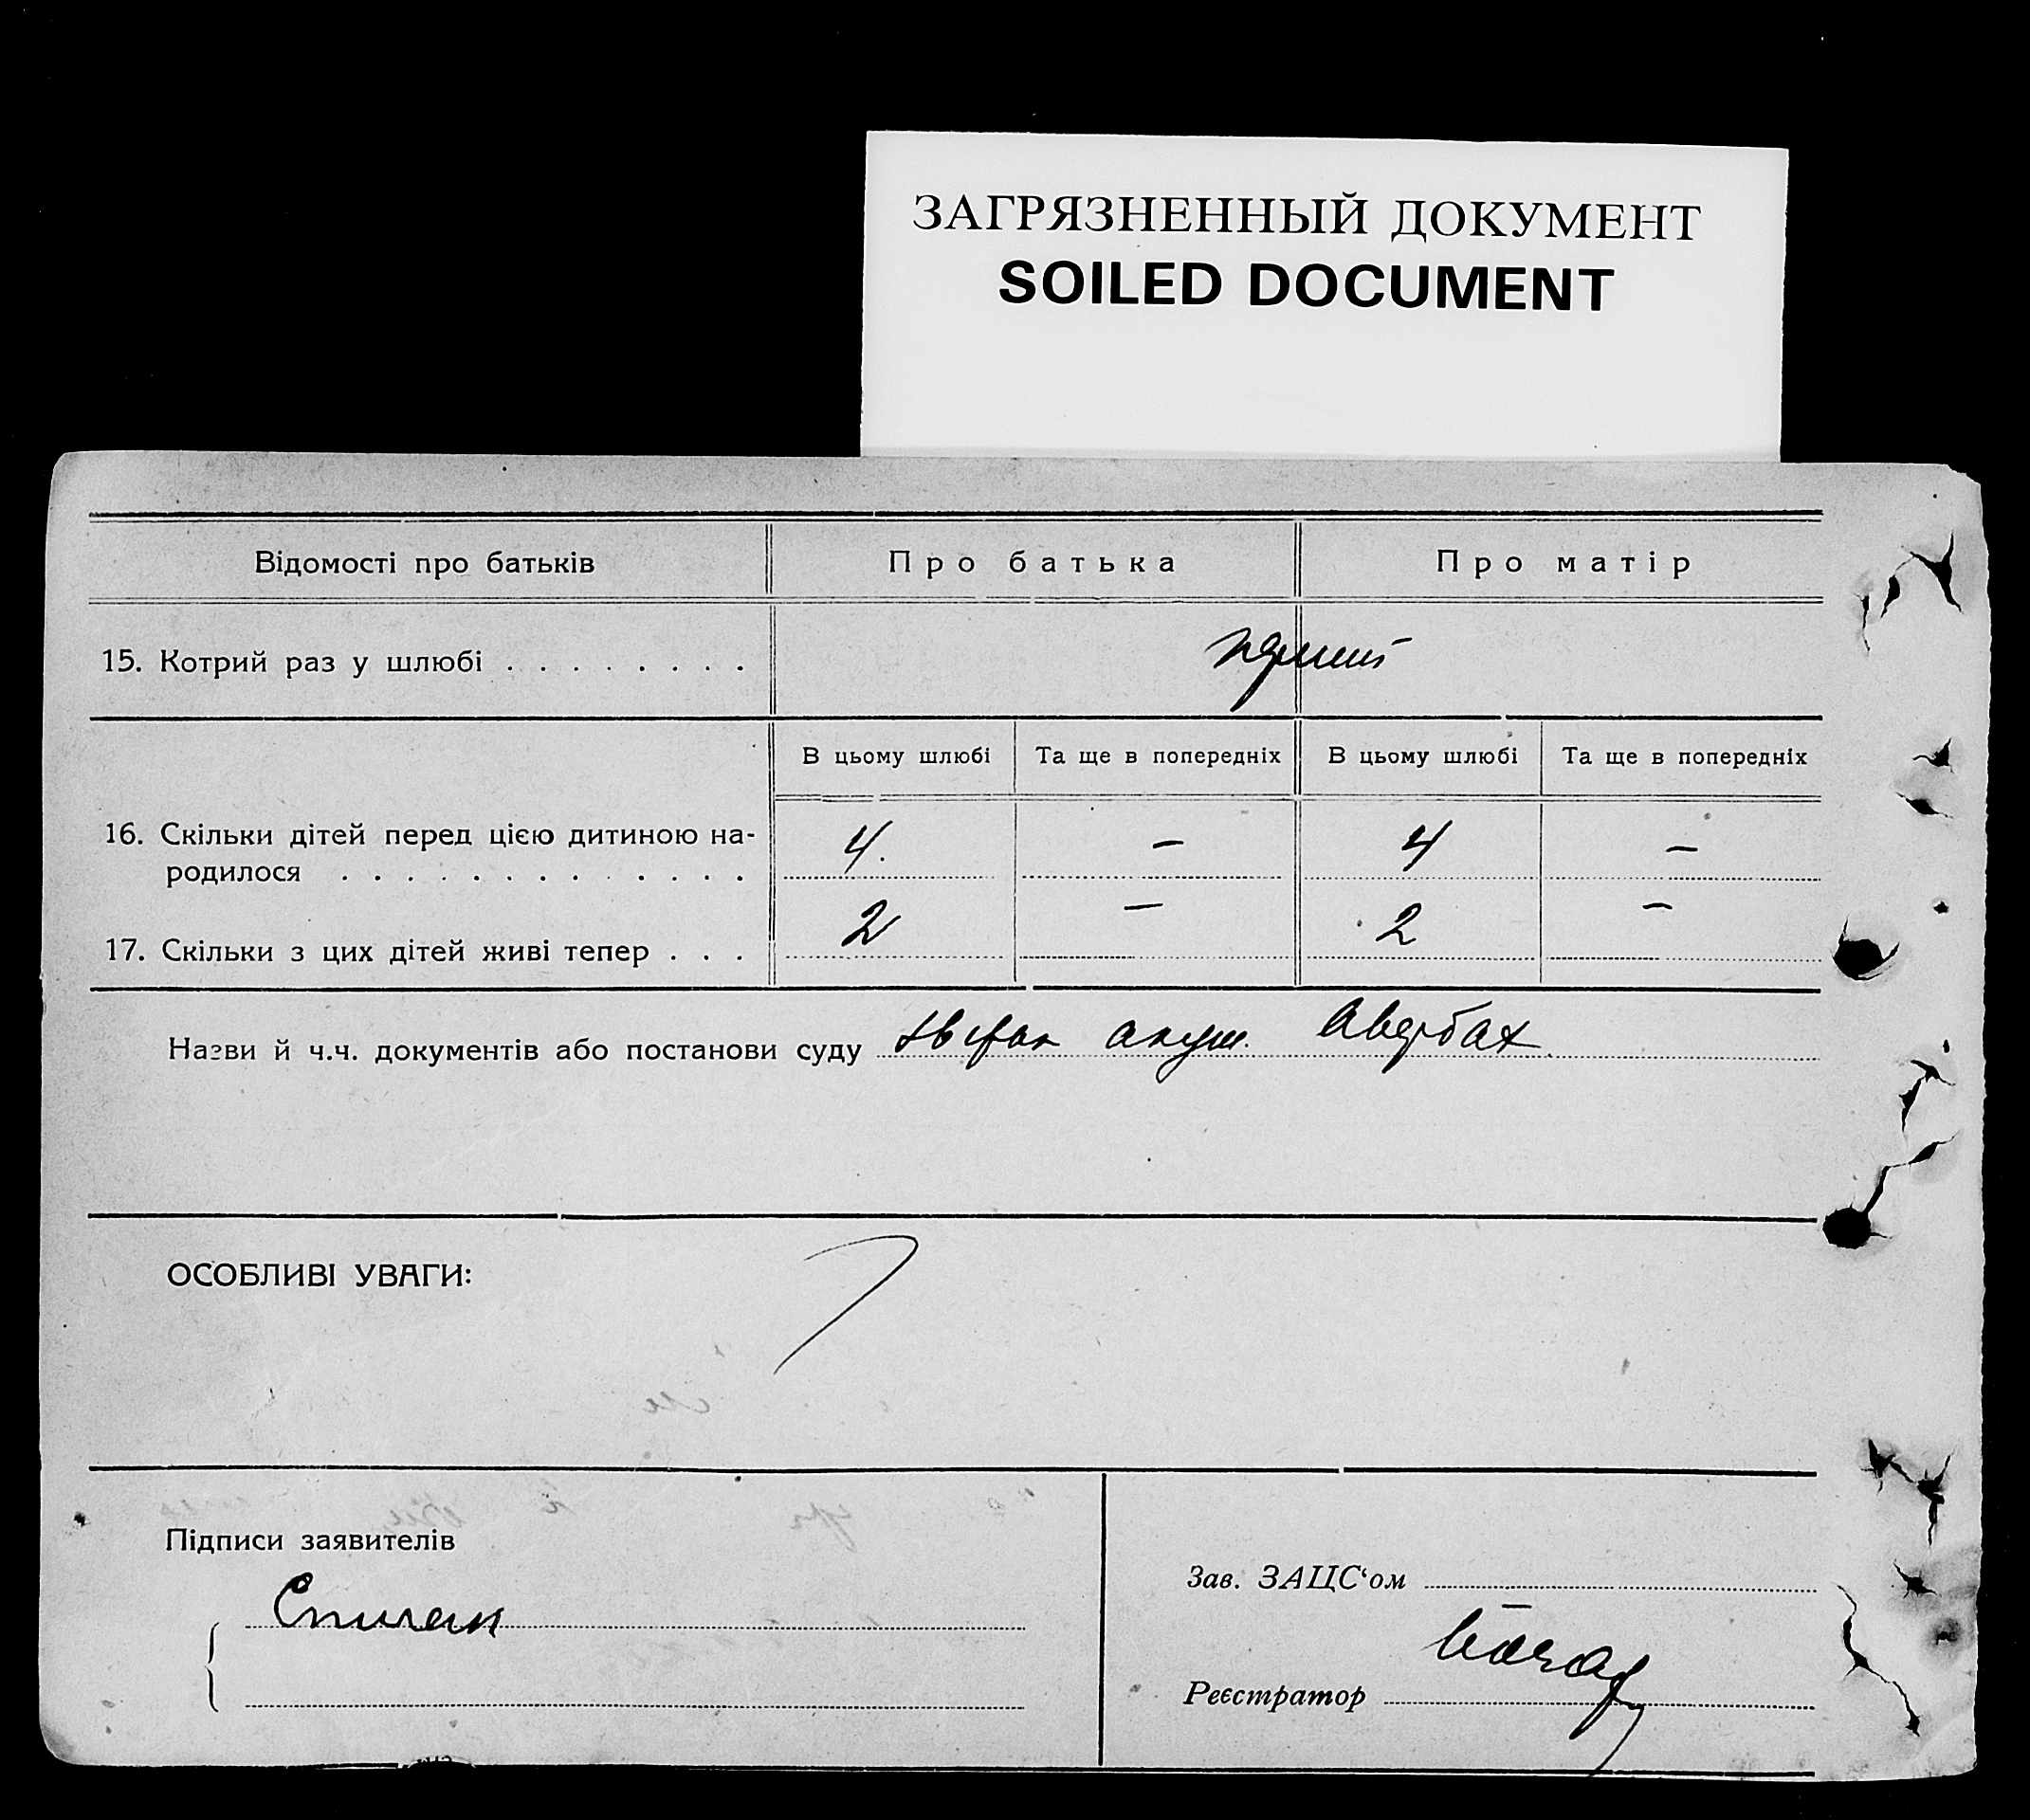 ЗАГРЯЗНЕННЫЙ ДОКУМЕНТ
SOILED DOCUMENT
Відомості про батьків Про батька Про матір
15. Котрий раз у шлюбі . . . . . . . .
В цьому шлюбі Та ще в попередніх В цьому шлюбі Та ще в попередніх
16. Скільки дітей перед цією дитиною на-
родилося . . . . . . . . . . . . . 4. — 4 —
17. Скільки з цих дітей живі тепер . . . 2 — 2 —
Назви й ч.ч. документів або постанови суду акуш. Авербах
ОСОБЛИВІ УВАГИ:
Підписи заявителів
Зав. ЗАЦС‘ом
Спивак
Реєстратор